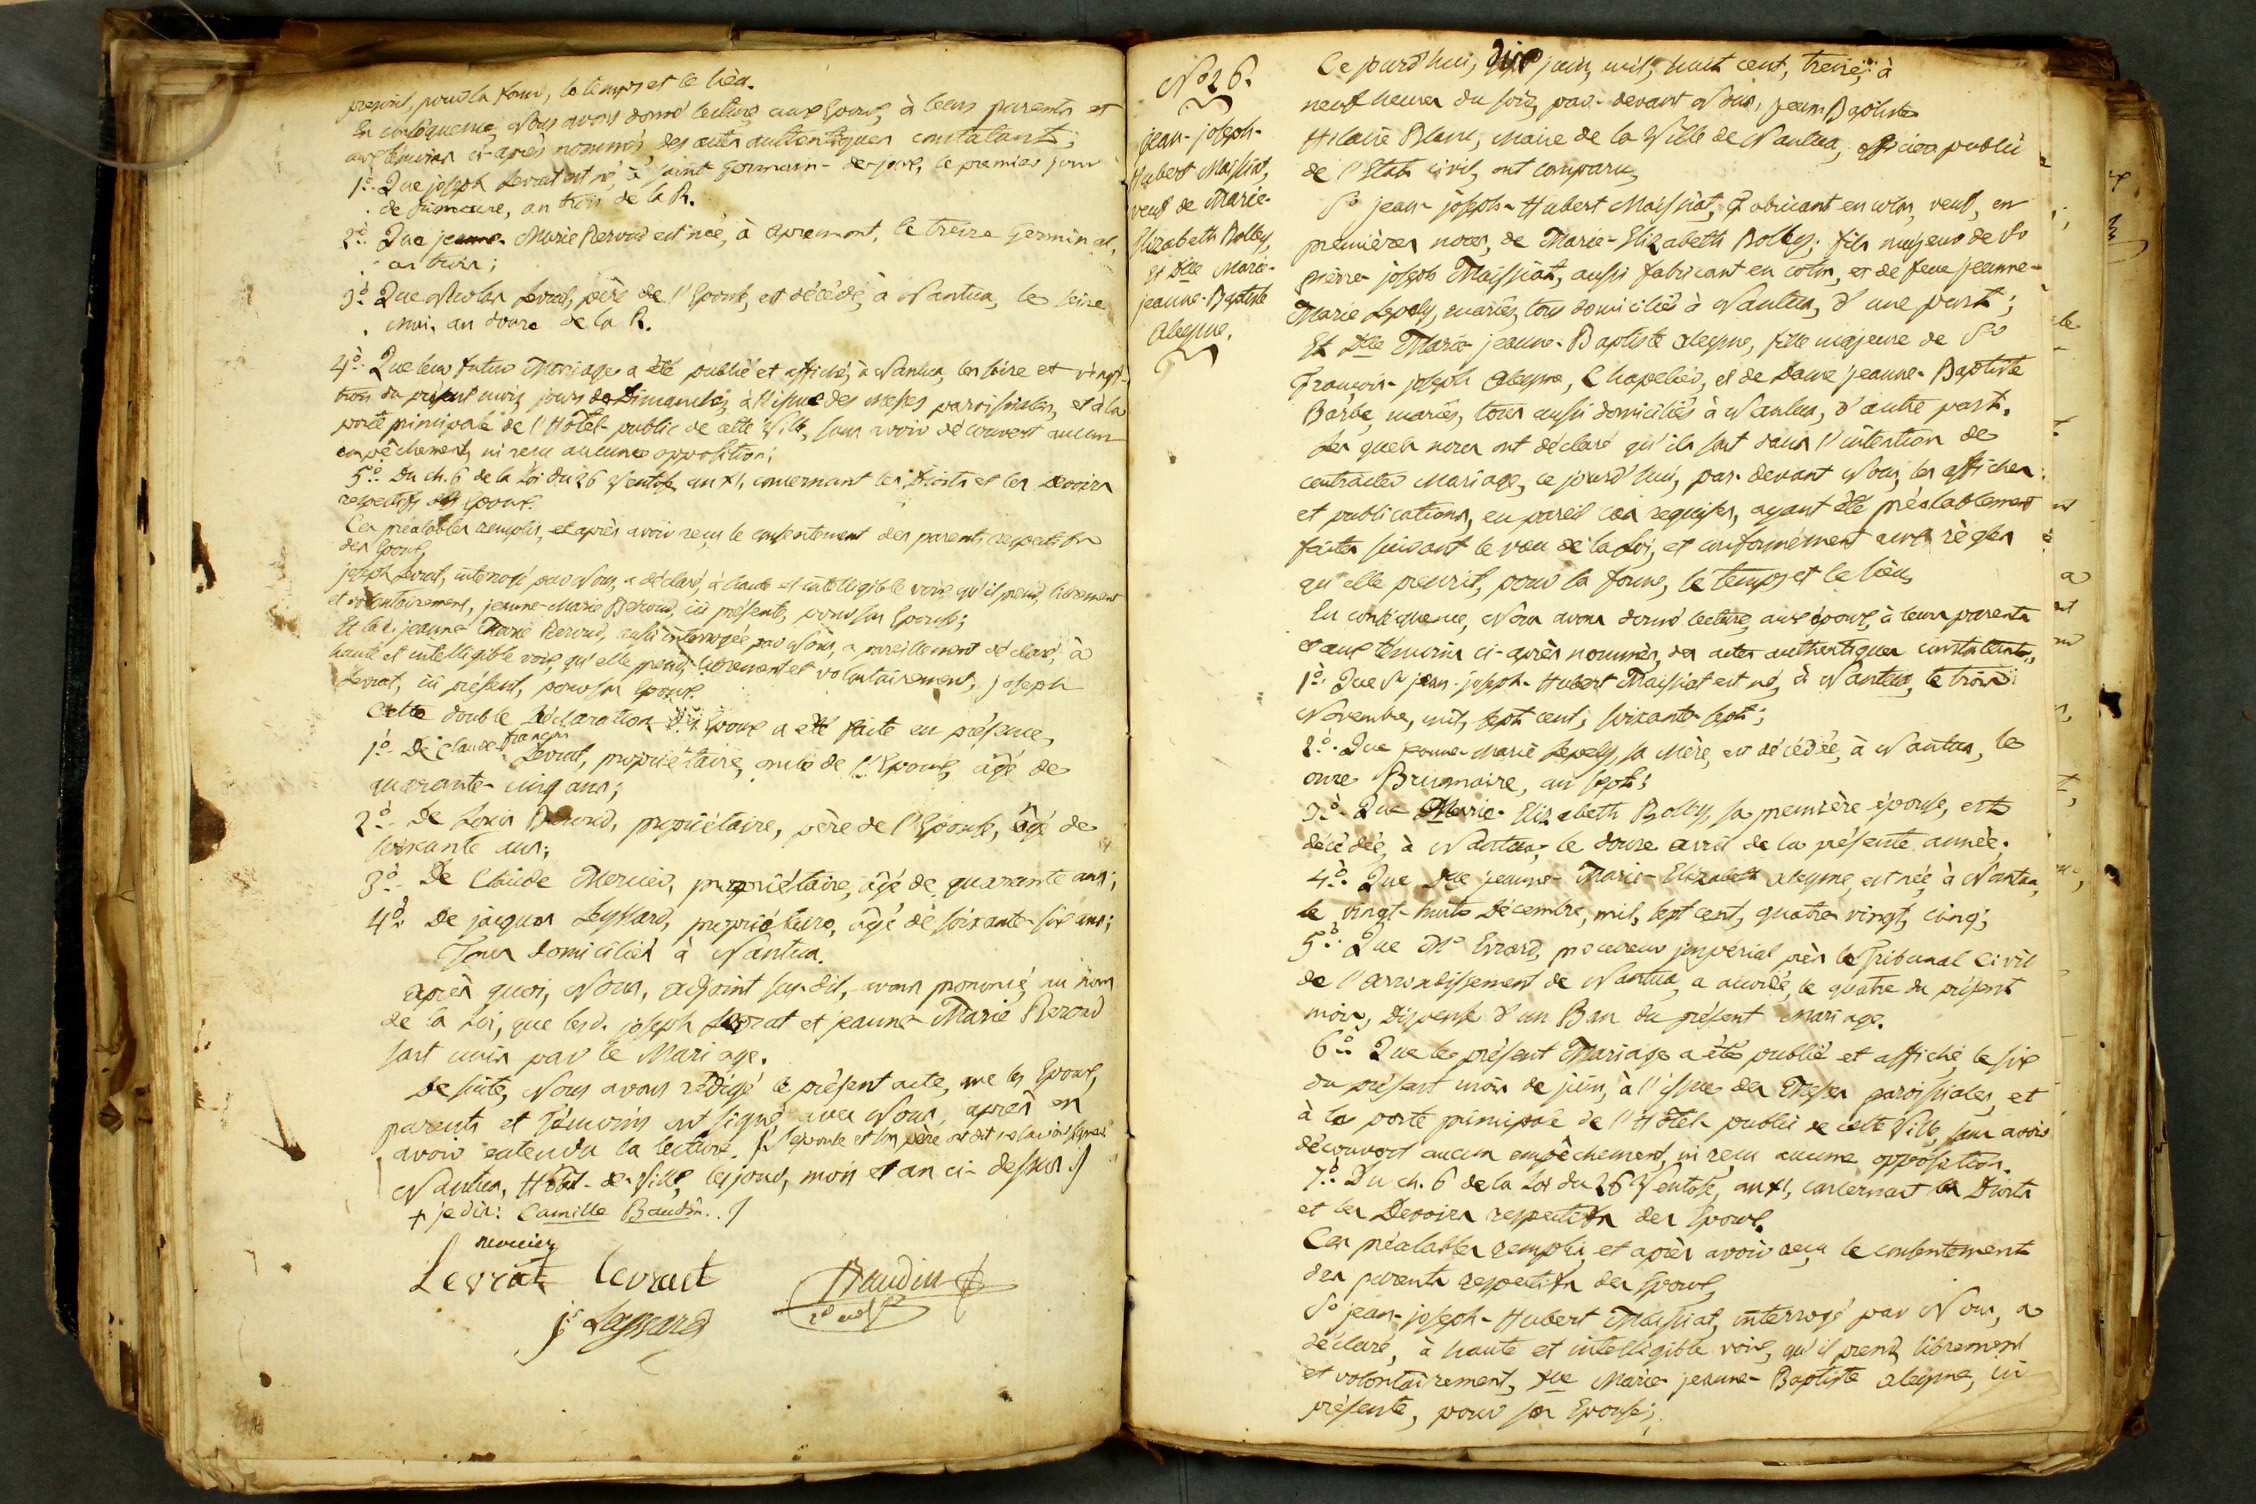 prescrit, pour la forme, le temps et le lieu.
En conséquence, Nous avons donné lecture aux Epoux, à leurs parents et
aux témoins ci-après nommés des actes authentiques constatant;
1º. Que joseph Levrat est né, à saint Germain-de-joux, le premier jour
de frimaire, an trois de la R.
2º. Que jeanne-Marie Beroud est née, à Apremont, le treize Germinal,
an trois;
3º. Que Nicolas Levrat, père de l'Epoux, est décédé, à Nantua, le seize
mai, an douze de la R.
4º. Que leur futur Mariage a été publié et affiché, à Nantua, les seize et vingt-
trois du présent mois, jours de Dimanche, à l'issue des messes paroissiales, et à la
porte principale de l'Hôtel public de cette Ville, sans avoir découvert aucun
empêchement, ni reçu aucune opposition;
5º. Du ch. 6 de la Loi du 26 Ventose an XI, concernant les Droits et les Devoirs
respectifs des Epoux.
Ces préalables remplis, et après avoir reçu le consentement des parents respectifs
des Epoux,
joseph Levrat, interrogé par Nous, a déclaré, à haute et intelligible voix, qu'il prend, librement
et volontairement, jeanne-Marie Beroud, ici présente, pour son Epouse;
Et lad. jeanne Marie Beroud, aussi interrogée par Nous, a pareillement déclaré, à
haute et intelligible voix, qu'elle prend, librement et volontairement, joseph
Levrat, ici présent, pour son Epoux.
Cette double Déclaration des Epoux a été faite en présence,
1º. De Claude françois Levrat, propriétaire, oncle de l'Epoux, âgé de
quarante-cinq ans;
2º. De Louis Beroud, propriétaire, père de l'Epouse, âgé de
soixante ans;
3º. De Claude Mercier, propriétaire, âgé de quarante ans;
4º. De jacques Leyssard, propriétaire, âgé de soixante-six ans;
Tous domiciliés à Nantua.
après quoi, Nous, adjoint sus-dit, avons prononcé, au nom
de la Loi, que lesd. joseph Levrat et jeanne-Marie Beroud
sont unis par le Mariage.
De suite, Nous avons rédigé le présent acte, que les Epoux,
parents et témoins ont signé avec Nous, après en
avoir entendu la lecture. l'epouse et son père ont dit ne savoir signer
Nantua, Hôtel-de-Ville, les jour, mois et an ci-dessus
+ je dis: Camille Baudin.
mercier
Levrat levrat Baudin
js Leyssard
Nº 26.
jean-joseph-
Hubert Maissiat,
veuf de Marie-
Elizabeth Bolley,
Et Dlle Marie-
jeanne-Baptiste
Aleyme.
Ce jourd'hui, dix juin, mil, huit cent, treize, à
neuf heures du soir, par-devant Nous, jean-Baptiste
Hilaire Blanc, Maire de la Ville de Nantua, officier public
de l'Etat civil, ont comparu,
Sr jean-joseph-Hubert Maissiat, fabricant en coton, veuf, en
premières noces, de Marie-Elizabeth Bolley; fils majeur de Sr
pierre joseph Maissiat, aussi fabricant en coton, et de feue jeanne-
Marie Lepely, mariés, tous domiciliés à Nantua, d'une part;
Et Dlle Marie-jeanne-Baptiste Aleyme, fille majeure de Sr
François-joseph Aleyme, Chapelier, et de Dame jeanne-Baptiste
Barbe, mariés, tous aussi domiciliés à Nantua, d'autre part.
Les quels nous ont déclaré qu'ils sont dans l'intention de
contracter Mariage, ce jourd'hui, par-devant Nous, les affiches
et publications, en pareil cas requises, ayant été préalablement
faites suivant le vœu de la Loi, et conformément aux règles
qu'elle prescrit, pour la forme, le temps et le lieu,
En conséquence, Nous avons donné lecture, aux époux, à leurs parents
et aux témoins ci-après nommés, des actes authentiques constatants,
1º. Que Sr jean-joseph-Hubert Maissiat est né, à Nantua, le trois
Novembre, mil, sept cent, soixante sept;
2º. Que jeanne-Marie Lepely, sa Mère, est décédée, à Nantua, le
onze Brumaire, an sept;
3º. Que Marie-Elizabeth Bolley, sa première épouse, est
décédée, à Nantua, le douze avril de la présente année.
4º. Que Dlle jeanne-Marie-Elizabeth Aleyme, est née, à Nantua,
le vingt-huit Décembre, mil, sept cent, quatre vingt, cinq;
5º. Que Mr Errard, procureur impérial près le Tribunal Civil
de l'arrondissement de Nantua, a accordé, le quatre du présent
mois, dispense d'un Ban du présent Mariage.
6º. Que le présent Mariage a été publié et affiché, le six
du présent mois de juin, à l'issue des Messes paroissiales, et
à la porte principale de l'Hôtel public de cette Ville, sans avoir
découvert aucun empêchement, ni reçu aucune opposition.
7º. Du ch. 6 de la Loi du 26 Ventose, an XI, concernant les Droits
et les Devoirs respectifs des Epoux.
Ces préalables remplis, et après avoir reçu le consentement
des parents respectifs des Epoux,
Sr jean-joseph-Hubert Maissiat, interrogé par Nous, a
déclaré, à haute et intelligible voix, qu'il prend, librement
et volontairement, Dlle Marie-jeanne-Baptiste Aleyme, ici
présente, pour son Epouse;